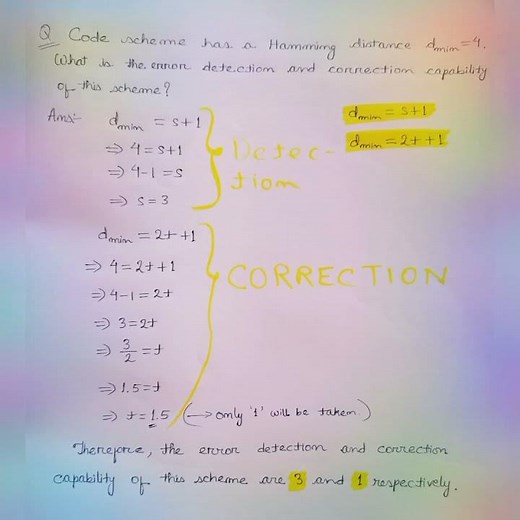 Q Code scheme has a Hamming distance dmin=4.
What is the error detection and correction capability
of this scheme?
Ans:- dmin = s+1
⇒ 4 = s+1
⇒ 4-1 = s
⇒ s = 3
Detec-
tion
dmin = s+1
dmin = 2t+1
dmin = 2t+1
⇒ 4 = 2t+1
⇒ 4-1 = 2t
⇒ 3 = 2t
⇒ 3/2 = t
⇒ 1.5 = t
⇒ t = 1.5 (→ only '1' will be taken.)
CORRECTION
Therefore, the error detection and correction
capability of this scheme are 3 and 1 respectively.